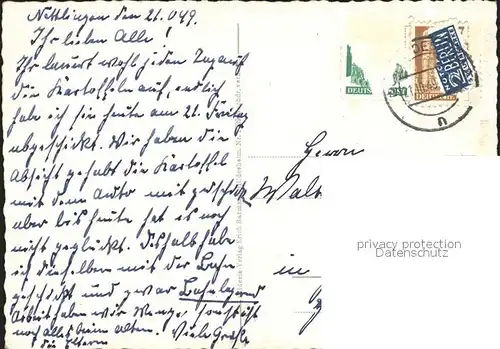 Nettlingen den 21.10 49.
Ihr lieben Alle!
Ihr lauert wohl jeden Tag auf
die Kartoffeln auf, endlich
habe ich sie heute am 21. Freitag
abgeschickt. Wir haben die
Absicht gehabt die Kartoffel
mit dem Auto mit
aber bis heute hat es noch
nicht geglückt. Deshalb habe
ich dieselben mit der Bahn
geschickt und zwar Bahnlagernd
Arbeit haben wir Menge, sonst ist
noch alles beim alten. Viele Grüße
die Eltern
Herrn
Walt
in
BERLIN
2
DEUTS
privacy protection
Datenschutz